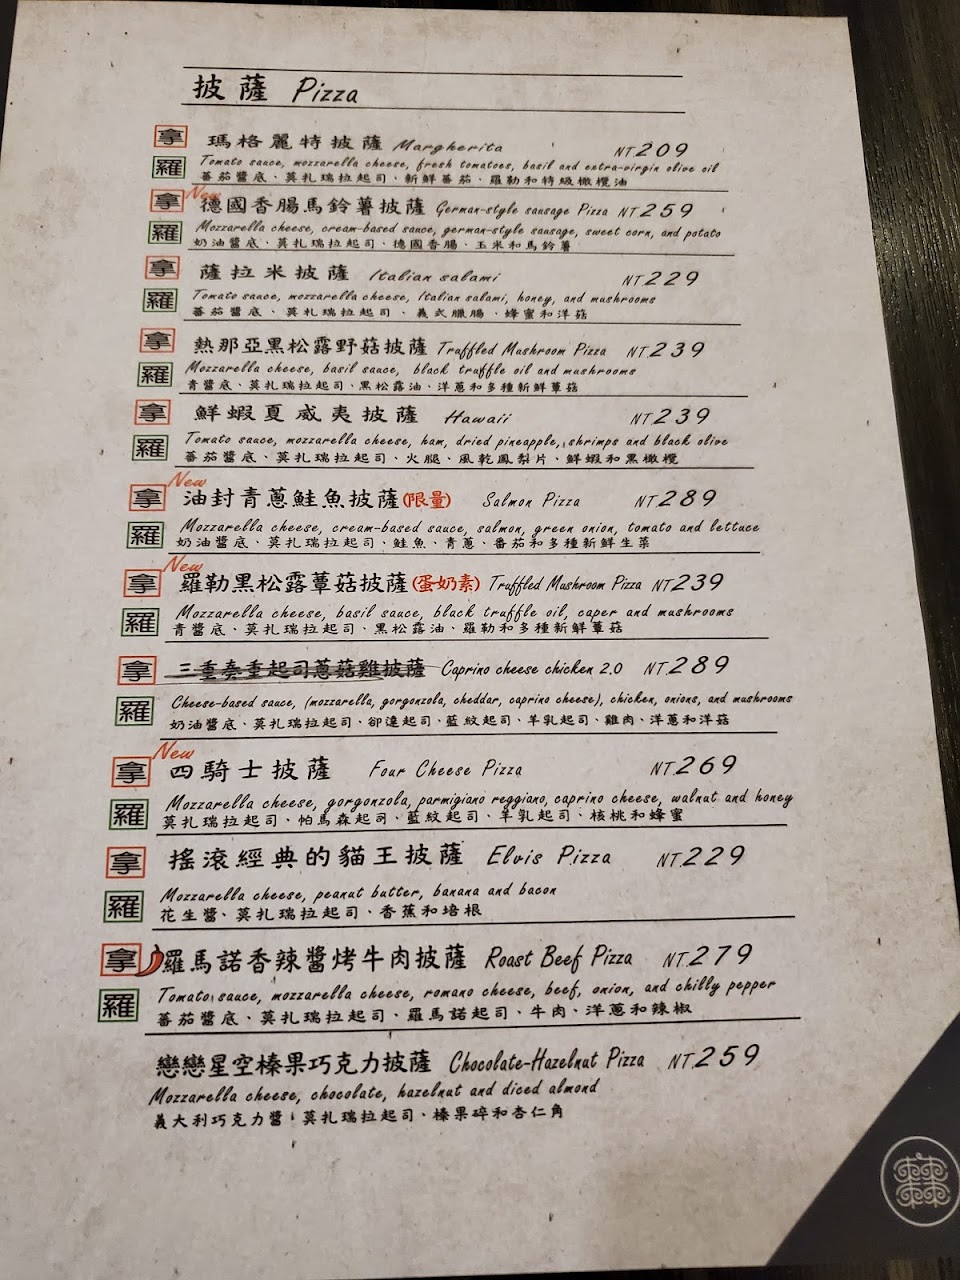 披薩 Pizza
拿 瑪格麗特披薩 Margherita NT.209
羅 Tomato sauce, mozzarella cheese, fresh tomatoes, basil and extra-virgin olive oil
蕃茄醬底、莫扎瑞拉起司、新鮮蕃茄、羅勒和特級橄欖油
New
拿 德國香腸馬鈴薯披薩 German-style sausage Pizza NT.259
羅 Mozzarella cheese, cream-based sauce, german-style sausage, sweet corn, and potato
奶油醬底、莫扎瑞拉起司、德國香腸、玉米和馬鈴薯
拿 薩拉米披薩 Italian salami NT.229
羅 Tomato sauce, mozzarella cheese, Italian salami, honey, and mushrooms
蕃茄醬底、莫扎瑞拉起司、義式臘腸、蜂蜜和洋菇
拿 熱那亞黑松露野菇披薩 Truffled Mushroom Pizza NT.239
羅 Mozzarella cheese, basil sauce, black truffle oil and mushrooms
青醬底、莫扎瑞拉起司、黑松露油、洋蔥和多種新鮮蕈菇
拿 鮮蝦夏威夷披薩 Hawaii NT.239
羅 Tomato sauce, mozzarella cheese, ham, dried pineapple, shrimps and black olive
蕃茄醬底、莫扎瑞拉起司、火腿、風乾鳳梨片、鮮蝦和黑橄欖
New
拿 油封青蔥鮭魚披薩(限量) Salmon Pizza NT.289
羅 Mozzarella cheese, cream-based sauce, salmon, green onion, tomato and lettuce
奶油醬底、莫扎瑞拉起司、鮭魚、青蔥、番茄和多種新鮮生菜
New
拿 羅勒黑松露蕈菇披薩(蛋奶素) Truffled Mushroom Pizza NT.239
羅 Mozzarella cheese, basil sauce, black truffle oil, caper and mushrooms
青醬底、莫扎瑞拉起司、黑松露油、羅勒和多種新鮮蕈菇
拿 三重奏重起司蔥菇雞披薩 Caprino cheese chicken 2.0 NT.289
羅 Cheese-based sauce, (mozzarella, gorgonzola, cheddar, caprino cheese), chicken, onions, and mushrooms
奶油醬底、莫扎瑞拉起司、卻達起司、藍紋起司、羊乳起司、雞肉、洋蔥和洋菇
New
拿 四騎士披薩 Four Cheese Pizza NT.269
羅 Mozzarella cheese, gorgonzola, parmigiano reggiano, caprino cheese, walnut and honey
莫扎瑞拉起司、帕馬森起司、藍紋起司、羊乳起司、核桃和蜂蜜
拿 搖滾經典的貓王披薩 Elvis Pizza NT.229
羅 Mozzarella cheese, peanut butter, banana and bacon
花生醬、莫扎瑞拉起司、香蕉和培根
拿 羅馬諾香辣醬烤牛肉披薩 Roast Beef Pizza NT.279
羅 Tomato sauce, mozzarella cheese, romano cheese, beef, onion, and chilly pepper
蕃茄醬底、莫扎瑞拉起司、羅馬諾起司、牛肉、洋蔥和辣椒
戀戀星空榛果巧克力披薩 Chocolate-Hazelnut Pizza NT.259
Mozzarella cheese, chocolate, hazelnut and diced almond
義大利巧克力醬、莫扎瑞拉起司、榛果碎和杏仁角